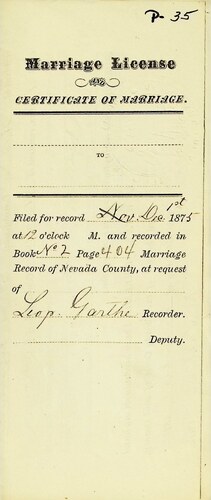 P-35
Marriage License
AND
CERTIFICATE OF MARRIAGE.
TO
Filed for record Nov. Dec 1st 1875
at 12 o'clock M. and recorded in
Book No 2 Page 404 Marriage
Record of Nevada County, at request
of
Leop. Garthe Recorder.
Deputy.